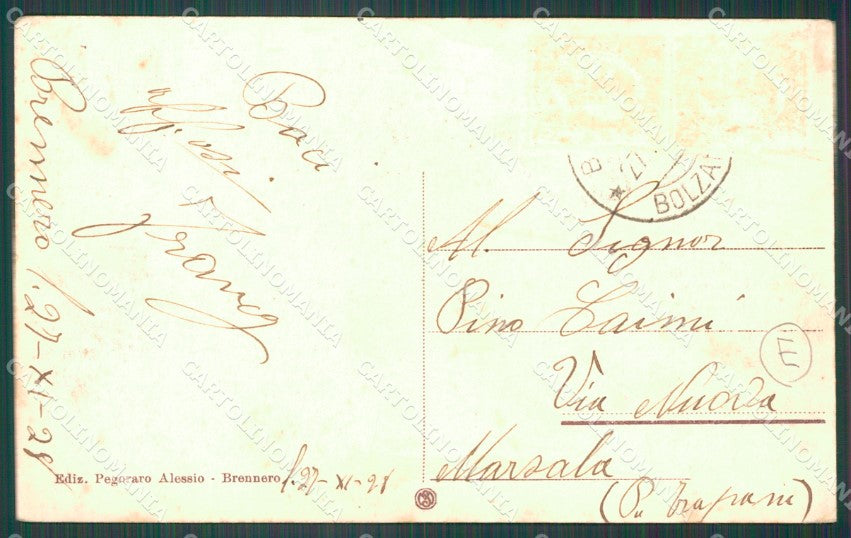 Brennero l. 27-XI-28
Baci
Franz
Ediz. Pegoraro Alessio - Brennero l. 27-XI-28
B
27
BOLZA
Al. Signor
Pino Caimi
Via Nuova
Marsala
(P. Trapani)
CARTOLINOMANIA